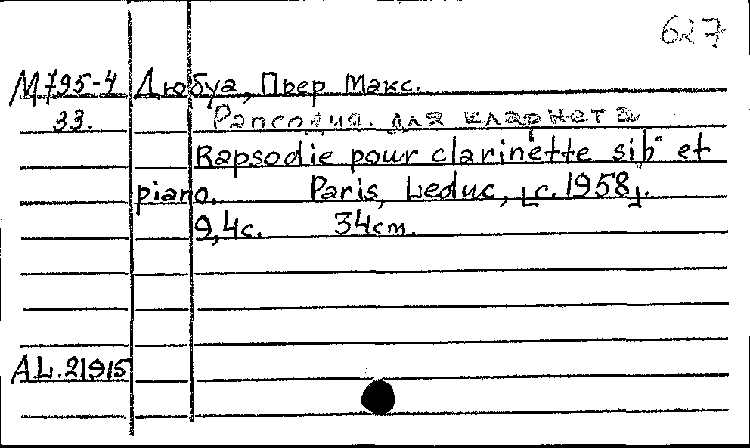 627
М795-4 Дюбуа, Пьер Макс.
33. Рапсодия. для кларнета
Rapsodie pour clarinette sib et
piano. Paris, Leduc, [c.1958].
9,4с. 34cm.
AL.21915